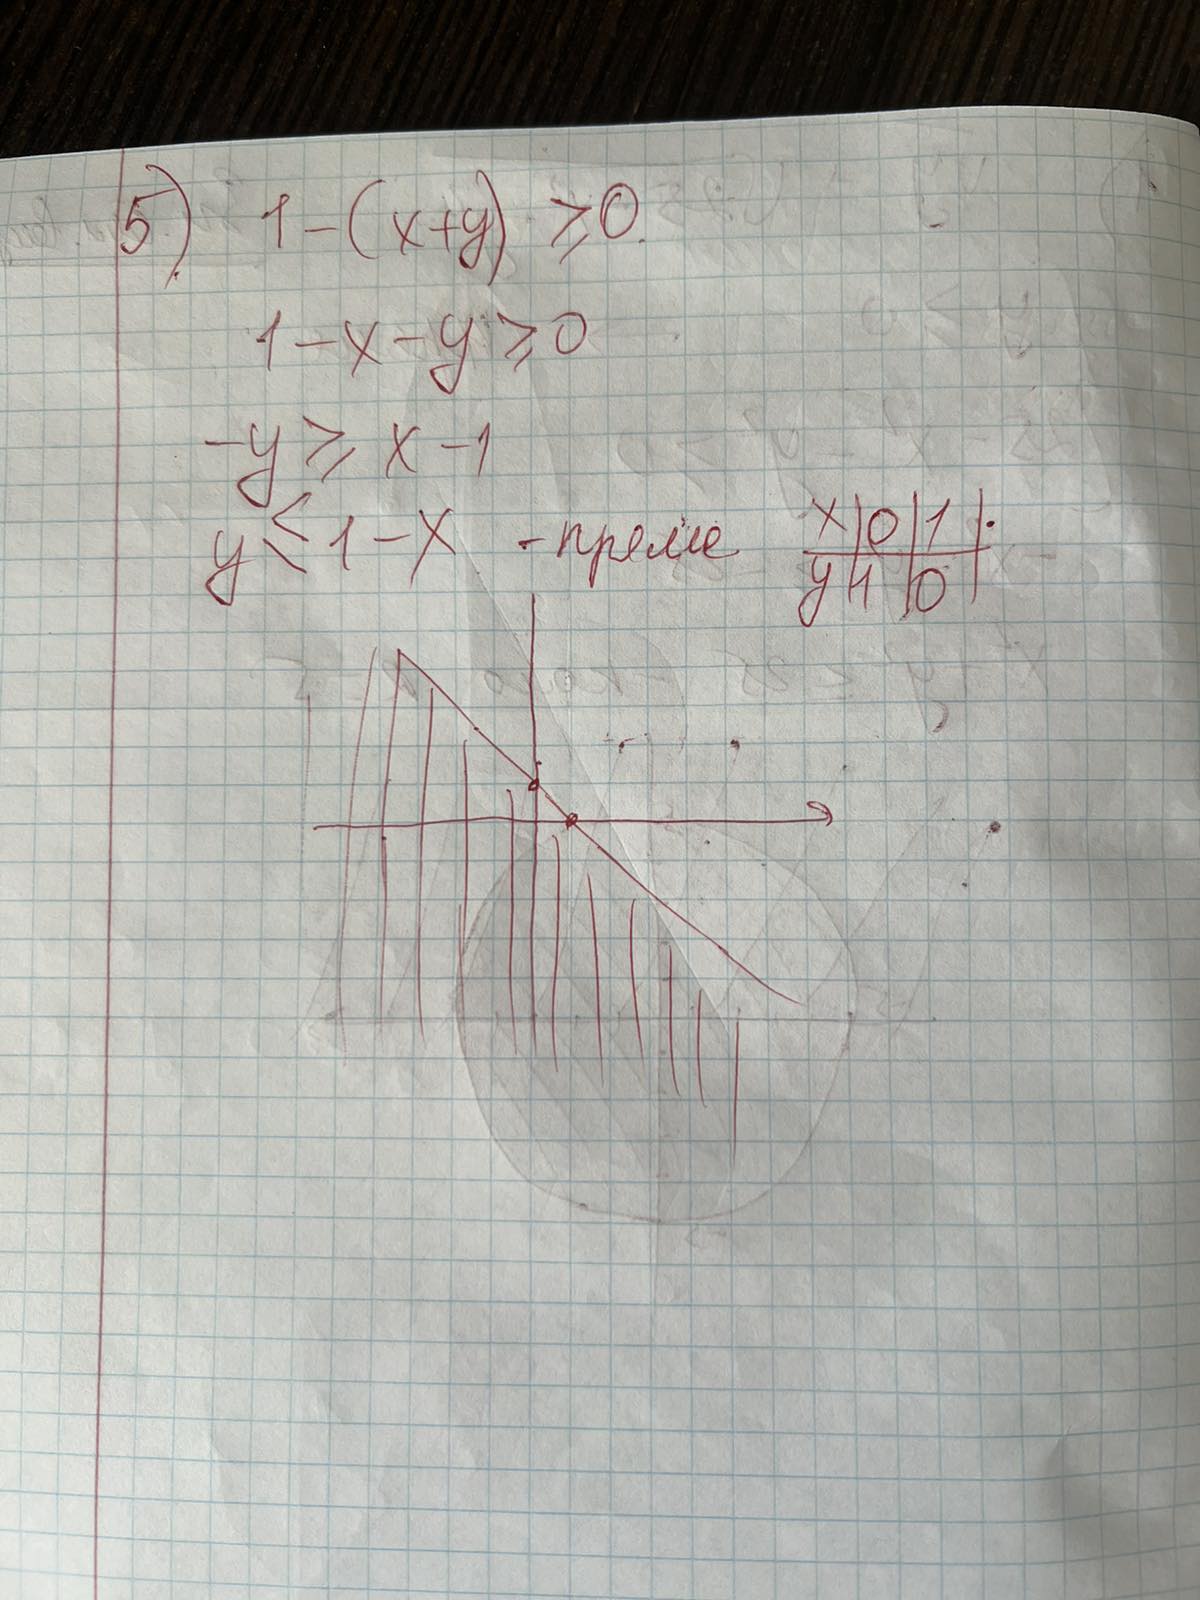 5) 1-(x+y) ≥0.
1-x-y≥0
-y≥x-1
y≤1-x - прямые x|0|1|
y|1|0|